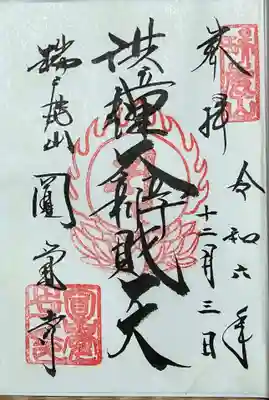 奉拝
令和六年
十二月三日
洪鐘弁財天
瑞鹿山
圓覚寺